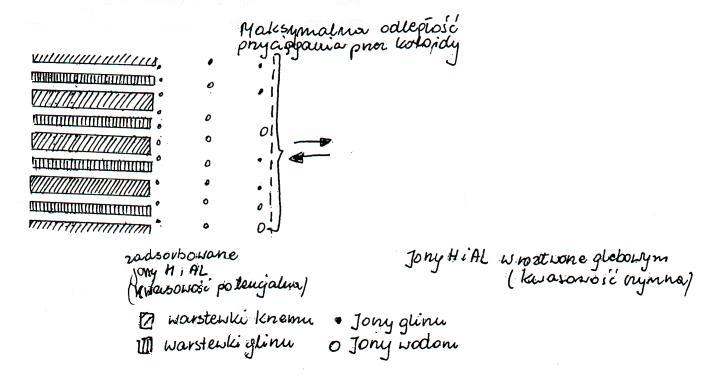 Maksymalna odległość
przyciągania przez koloidy
zadsorbowane
jony H i AL
(kwasowość potencjalna)
Jony H i AL w roztworze glebowym
(kwasowość czynna)
warstewki krzemu
• Jony glinu
warstewki glinu
o Jony wodoru